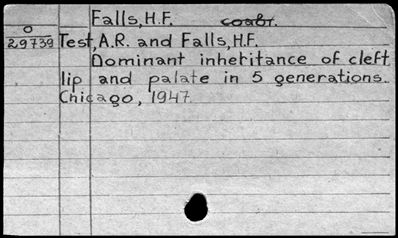 Falls, H.F. coabt.
0
29739 Test, A.R. and Falls, H.F.
Dominant inheritance of cleft
lip and palate in 5 generations.
Chicago, 1947